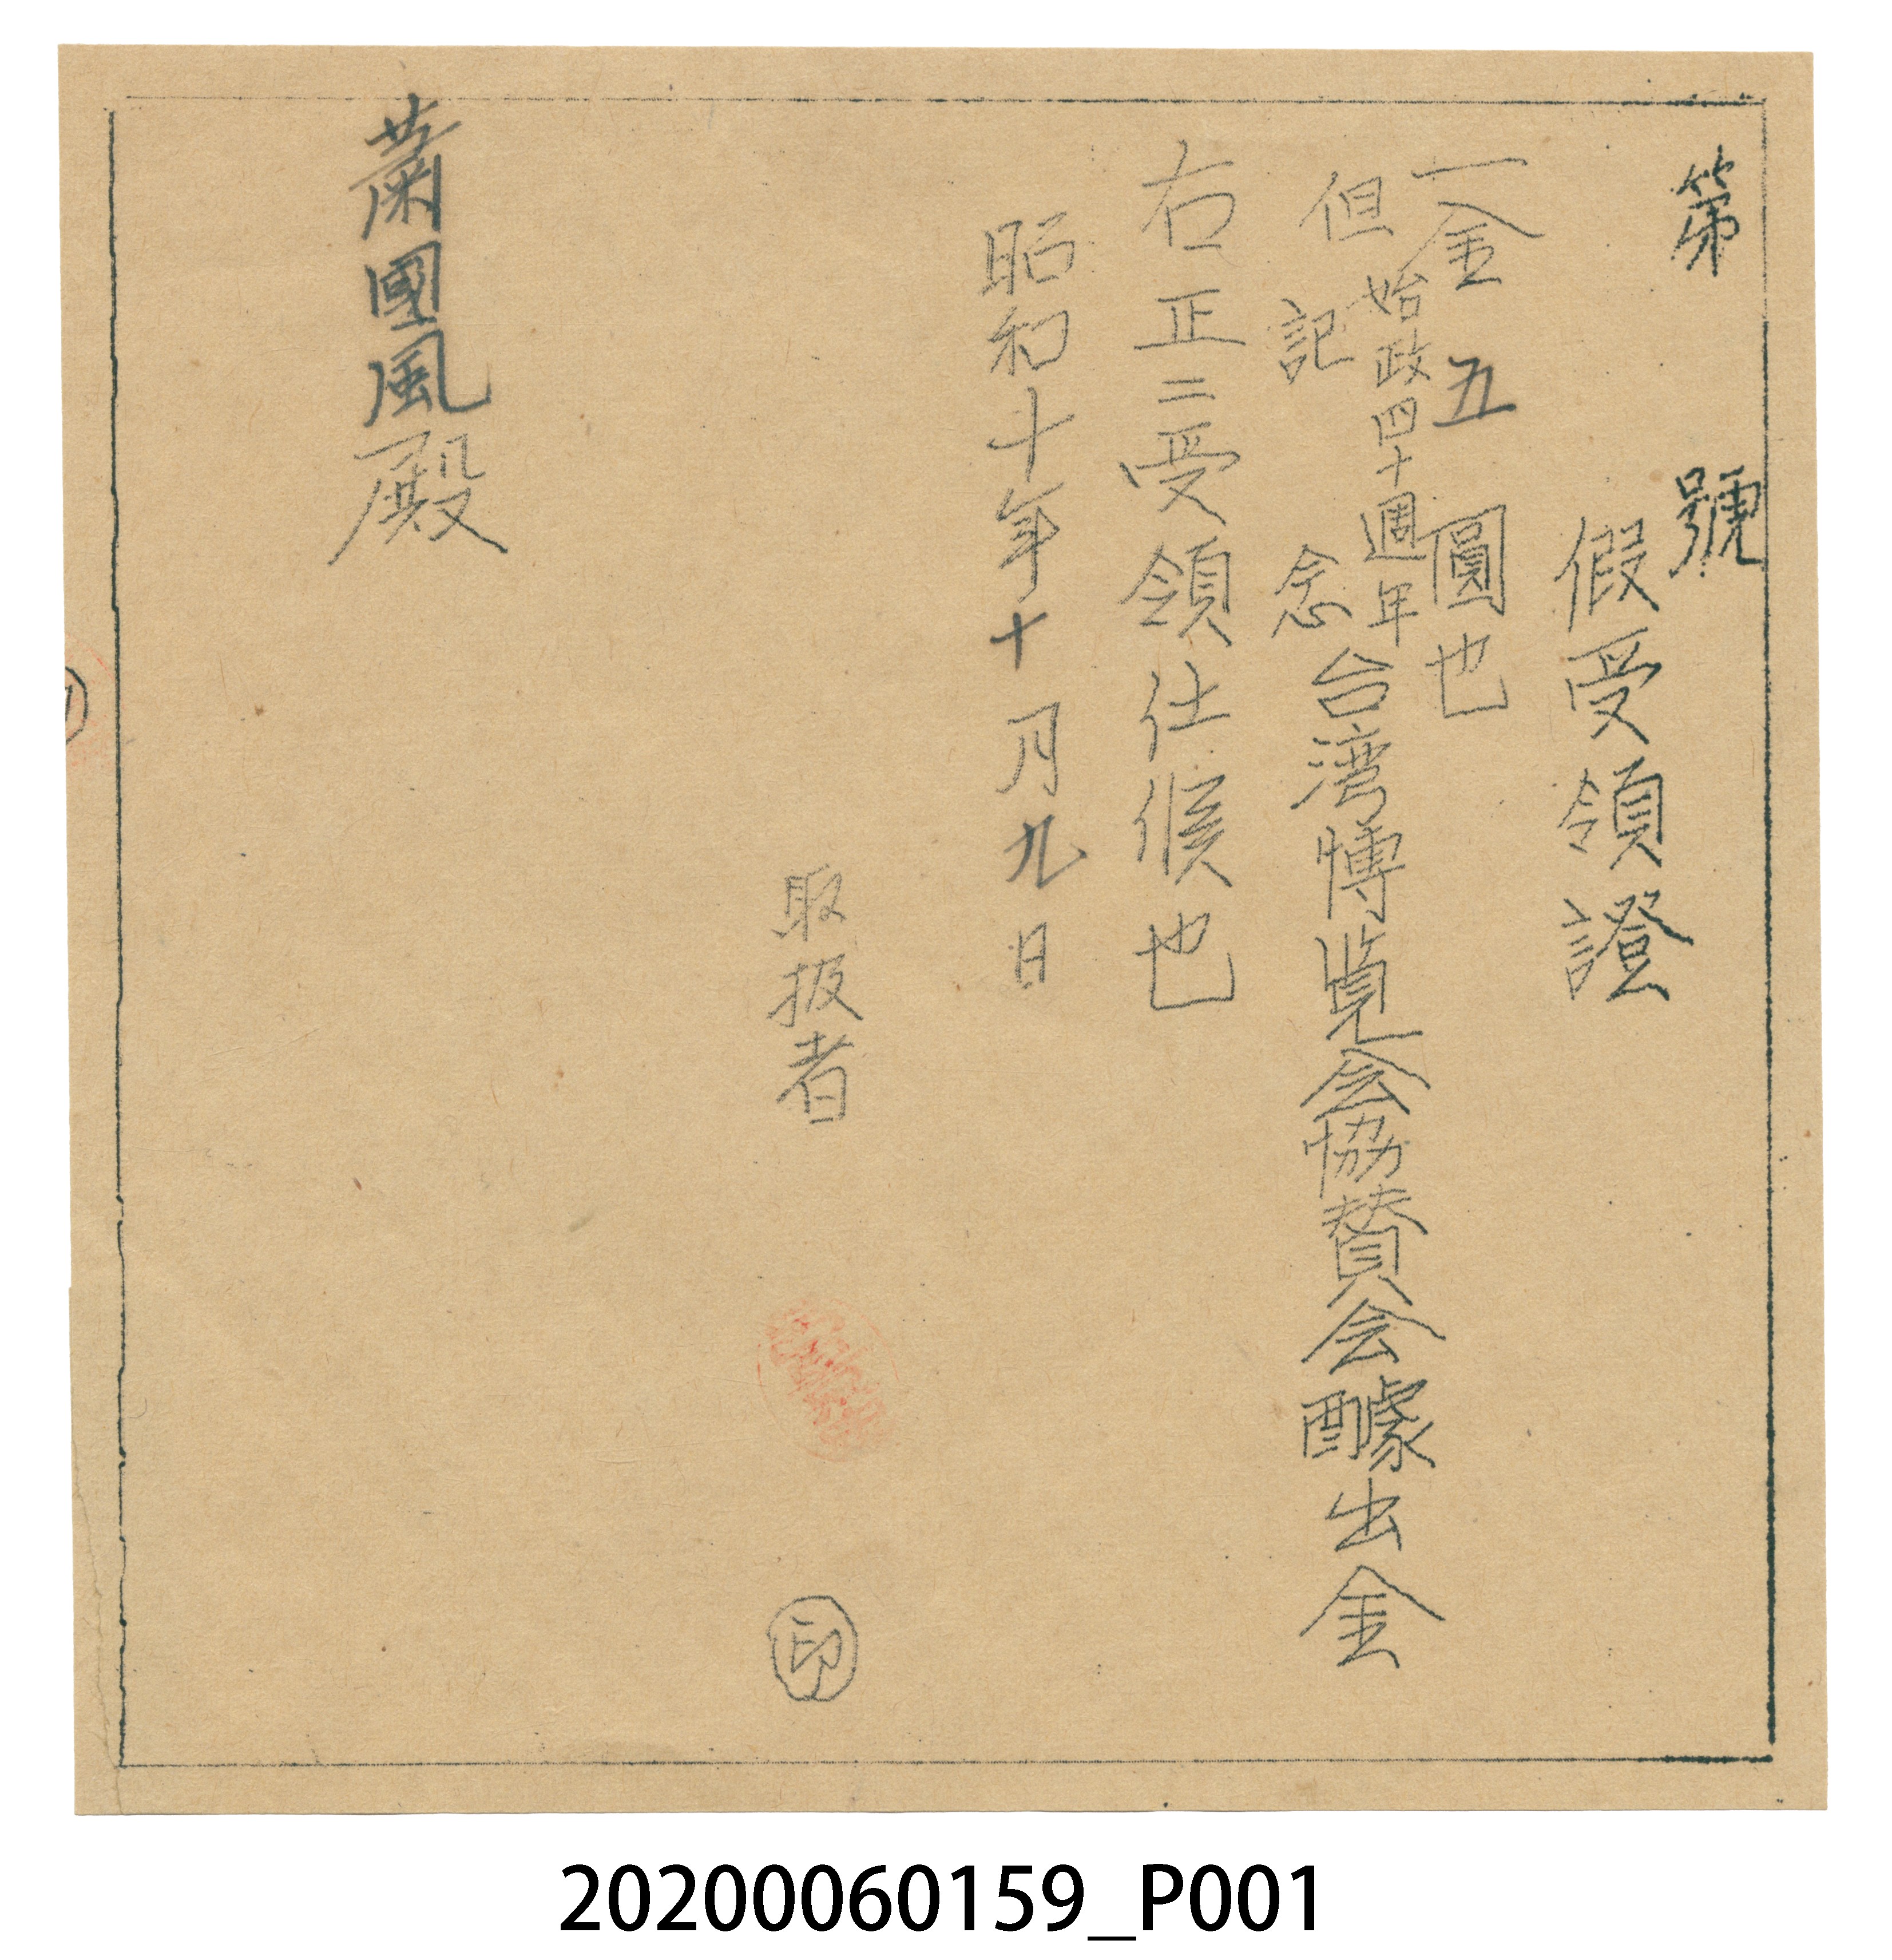 第　號
假受領證
一金五圓也
但始政四十週年
記念台湾博覧会協賛会醵出金
右正ニ受領仕候也
昭和十年十月九日
取扱者
印
蕭國風殿
20200060159_P001